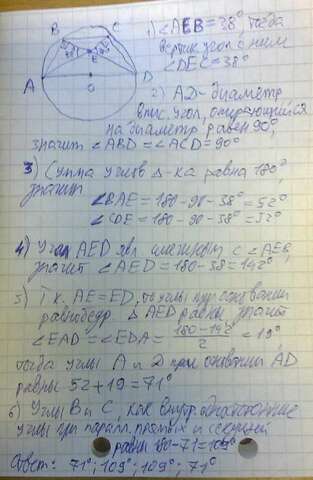 B C
E
A D
O
1) ∠AEB=38°, тогда
вертик. угол с ним
∠DEC=38°
2) AD-диаметр
впис. угол, опирающийся
на диаметр равен 90°,
значит ∠ABD=∠ACD=90°
3) Сумма углов Δ-ка равна 180°,
значит
∠BAE=180-90-38°=52°
∠CDE=180-90-38°=52°
4) Угол AED явл. смежным с ∠AEB,
значит ∠AED=180-38=142°
5) Т.к. AE=ED, то углы при основании
равнобедр. Δ AED равны, значит
∠EAD=∠EDA= 180-142 / 2 =19°
тогда углы A и D при основании AD
равны 52+19=71°
6) Углы B и C, как внутр. односторонние
углы при паралл. прямых и секущей
равны 180-71=109°
Ответ: 71°; 109°; 109°; 71°